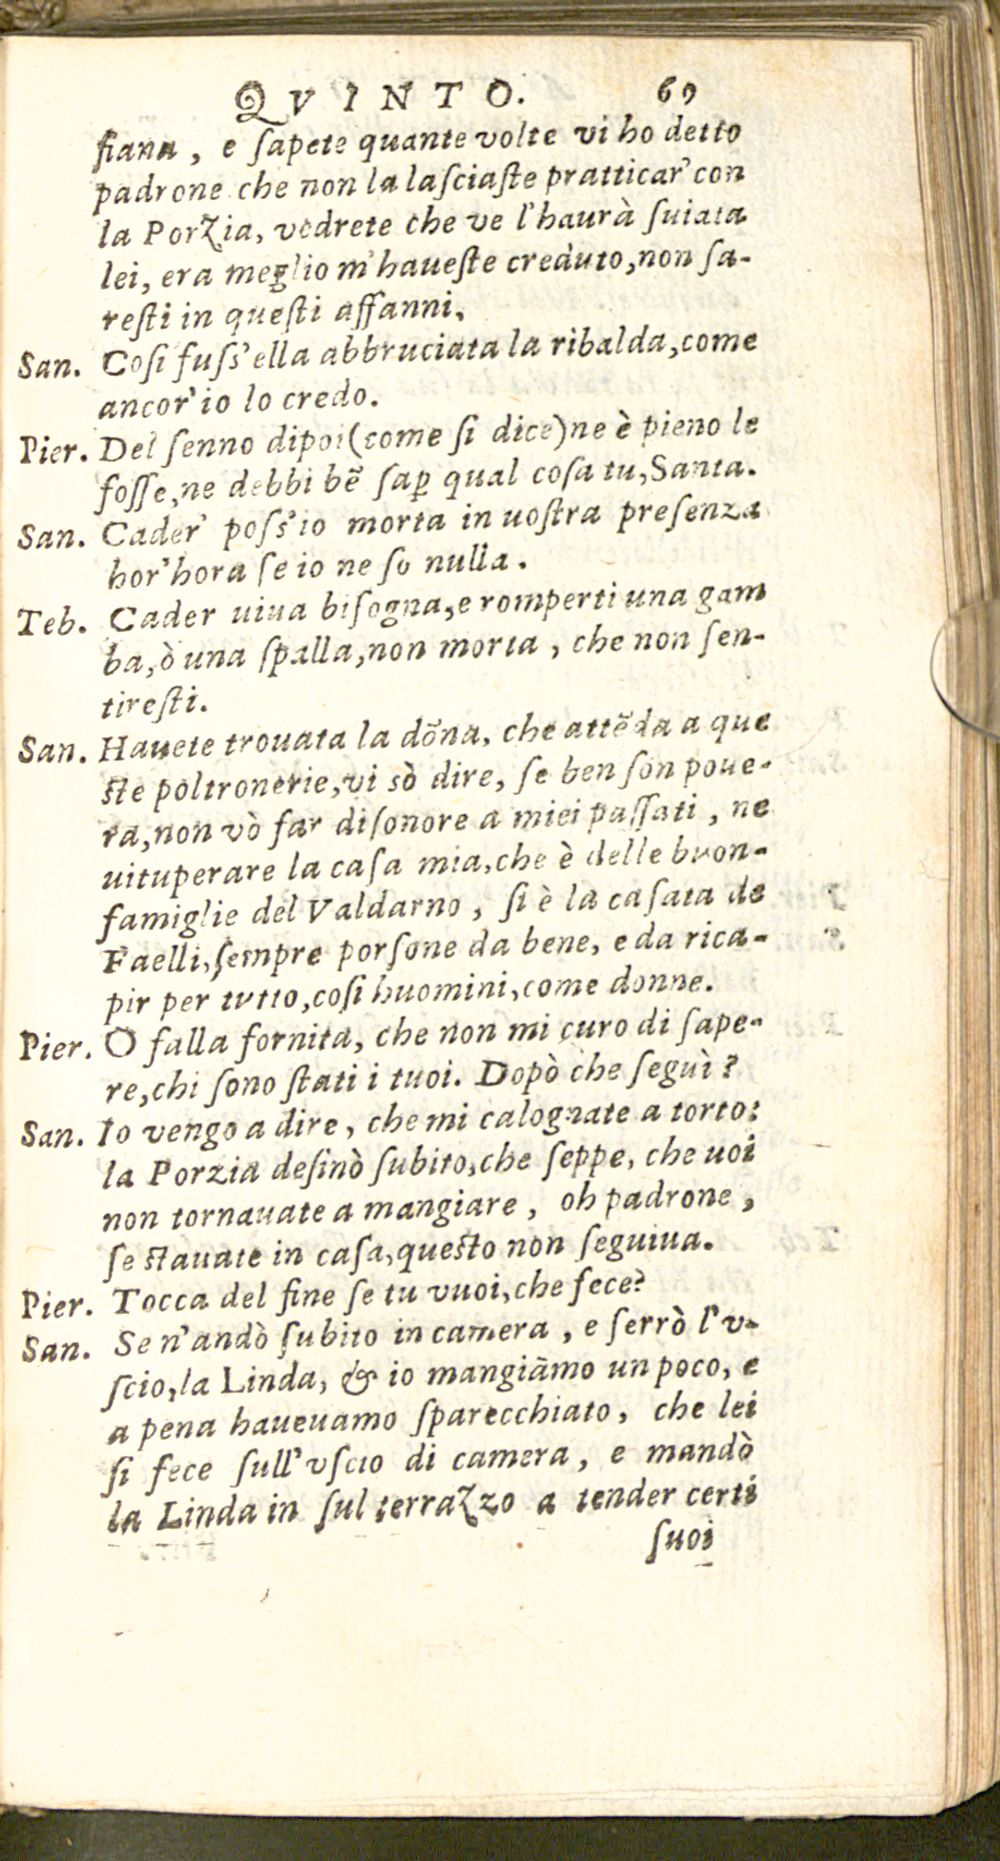 QVINTO. 69
fiana, e ſapete quante volte vi ho detto
padrone che non la laſciaſte pratticar' con
la Porzia, vedrete che ve l'haurà ſuiata
lei, era meglio m'haueſte creduto, non ſa-
reſti in queſti affanni.
San. Coſi fuſs'ella abbruciata la ribalda, come
ancor'io lo credo.
Pier. Del ſenno dipoi (come ſi dice) ne è pieno le
foſſe, ne debbi bẽ ſaꝑ qual coſa tu, Santa.
San. Cader' poſs'io morta in uoſtra preſenza
hor'hora ſe io ne ſo nulla.
Teb. Cader uiua biſogna, e romperti una gam
ba, ò una ſpalla, non morta, che non ſen-
tireſti.
San. Hauete trouata la dõna, che attẽda a que
ſte poltronerie, vi sò dire, ſe ben ſon poue-
ra, non vò far diſonore a miei paſſati, ne
uituperare la caſa mia, che è delle buon-
famiglie del Valdarno, ſi è la caſata de
Faelli, ſempre porſone da bene, e da rica-
pir per tvtto, coſi huomini, come donne.
Pier. O falla fornita, che non mi curo di ſape-
re, chi ſono ſtati i tuoi. Dopò che ſeguì?
San. Io vengo a dire, che mi calognate a torto:
la Porzia deſinò ſubito, che ſeppe, che uoi
non tornauate a mangiare, oh padrone,
ſe ſtauate in caſa, queſto non ſeguiua.
Pier. Tocca del fine ſe tu vuoi, che fece?
San. Se n'andò ſubito in camera, e ſerrò l'v-
ſcio, la Linda, & io mangiãmo un poco, e
a pena haueuamo ſparecchiato, che lei
ſi fece ſull'vſcio di camera, e mandò
la Linda in ſul terrazzo a tender certi
ſuoi